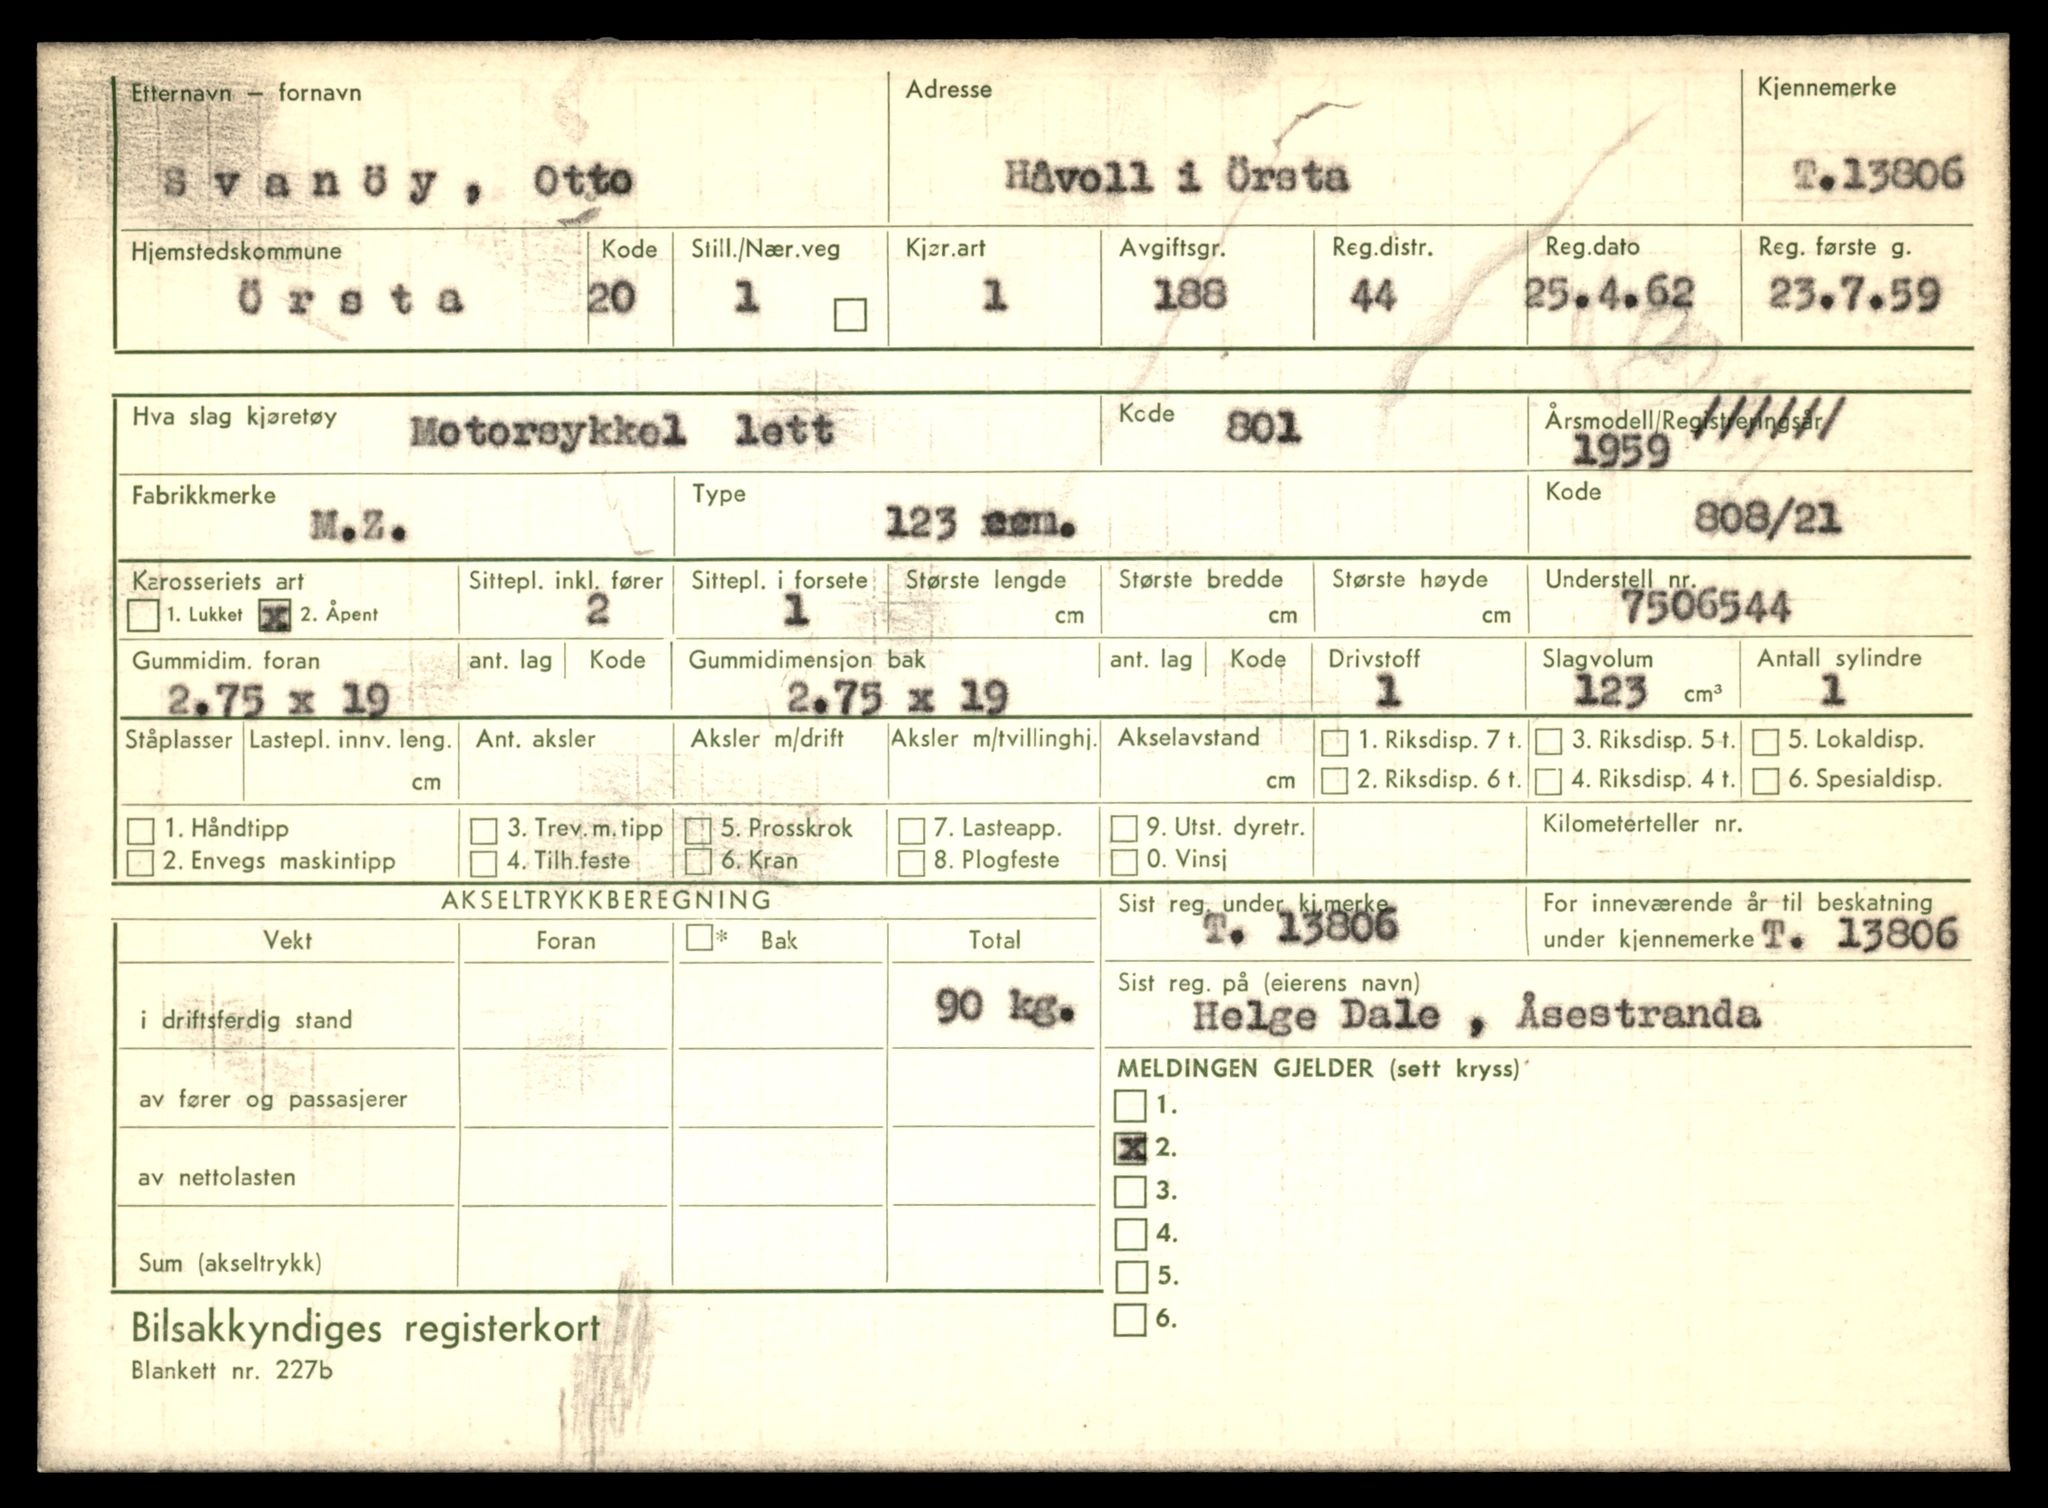 Etternavn – fornavn Adresse Kjennemerke
Svanöy, Otto Håvoll i Örsta T.13806
Hjemstedskommune Kode Still./Nær.veg Kjør.art Avgiftsgr. Reg.distr. Reg.dato Reg. første g.
Örsta 20 1 1 188 44 25.4.62 23.7.59
Hva slag kjøretøy Motorsykkel lett Kode 801 Årsmodell/Registreringsår //////
1959
Fabrikkmerke Type Kode
M.Z. 123 808/21
Karosseriets art Sittepl. inkl. fører Sittepl. i forsete Største lengde Største bredde Største høyde Understell nr.
1. Lukket x 2. Åpent 2 1 cm cm cm 7506544
Gummidim. foran ant. lag Kode Gummidimensjon bak ant. lag Kode Drivstoff Slagvolum Antall sylindre
2.75 x 19 2.75 x 19 1 123 cm³ 1
Ståplasser Lastepl. innv. leng. Ant. aksler Aksler m/drift Aksler m/tvillinghj. Akselavstand 1. Riksdisp. 7 t. 3. Riksdisp. 5 t. 5. Lokaldisp.
cm cm 2. Riksdisp. 6 t. 4. Riksdisp. 4 t. 6. Spesialdisp.
1. Håndtipp 3. Trev. m. tipp 5. Prosskrok 7. Lasteapp. 9. Utst. dyretr. Kilometerteller nr.
2. Envegs maskintipp 4. Tilh.feste 6. Kran 8. Plogfeste 0. Vinsj
AKSELTRYKKBEREGNING Sist reg. under kj.merke For inneværende år til beskatning
T. 13806 under kjennemerke T. 13806
Vekt Foran * Bak Total
Sist reg. på (eierens navn)
i driftsferdig stand 90 kg. Helge Dale , Åsestranda
MELDINGEN GJELDER (sett kryss)
av fører og passasjerer 1.
x 2.
av nettolasten 3.
4.
Sum (akseltrykk) 5.
6.
Bilsakkyndiges registerkort
Blankett nr. 227b